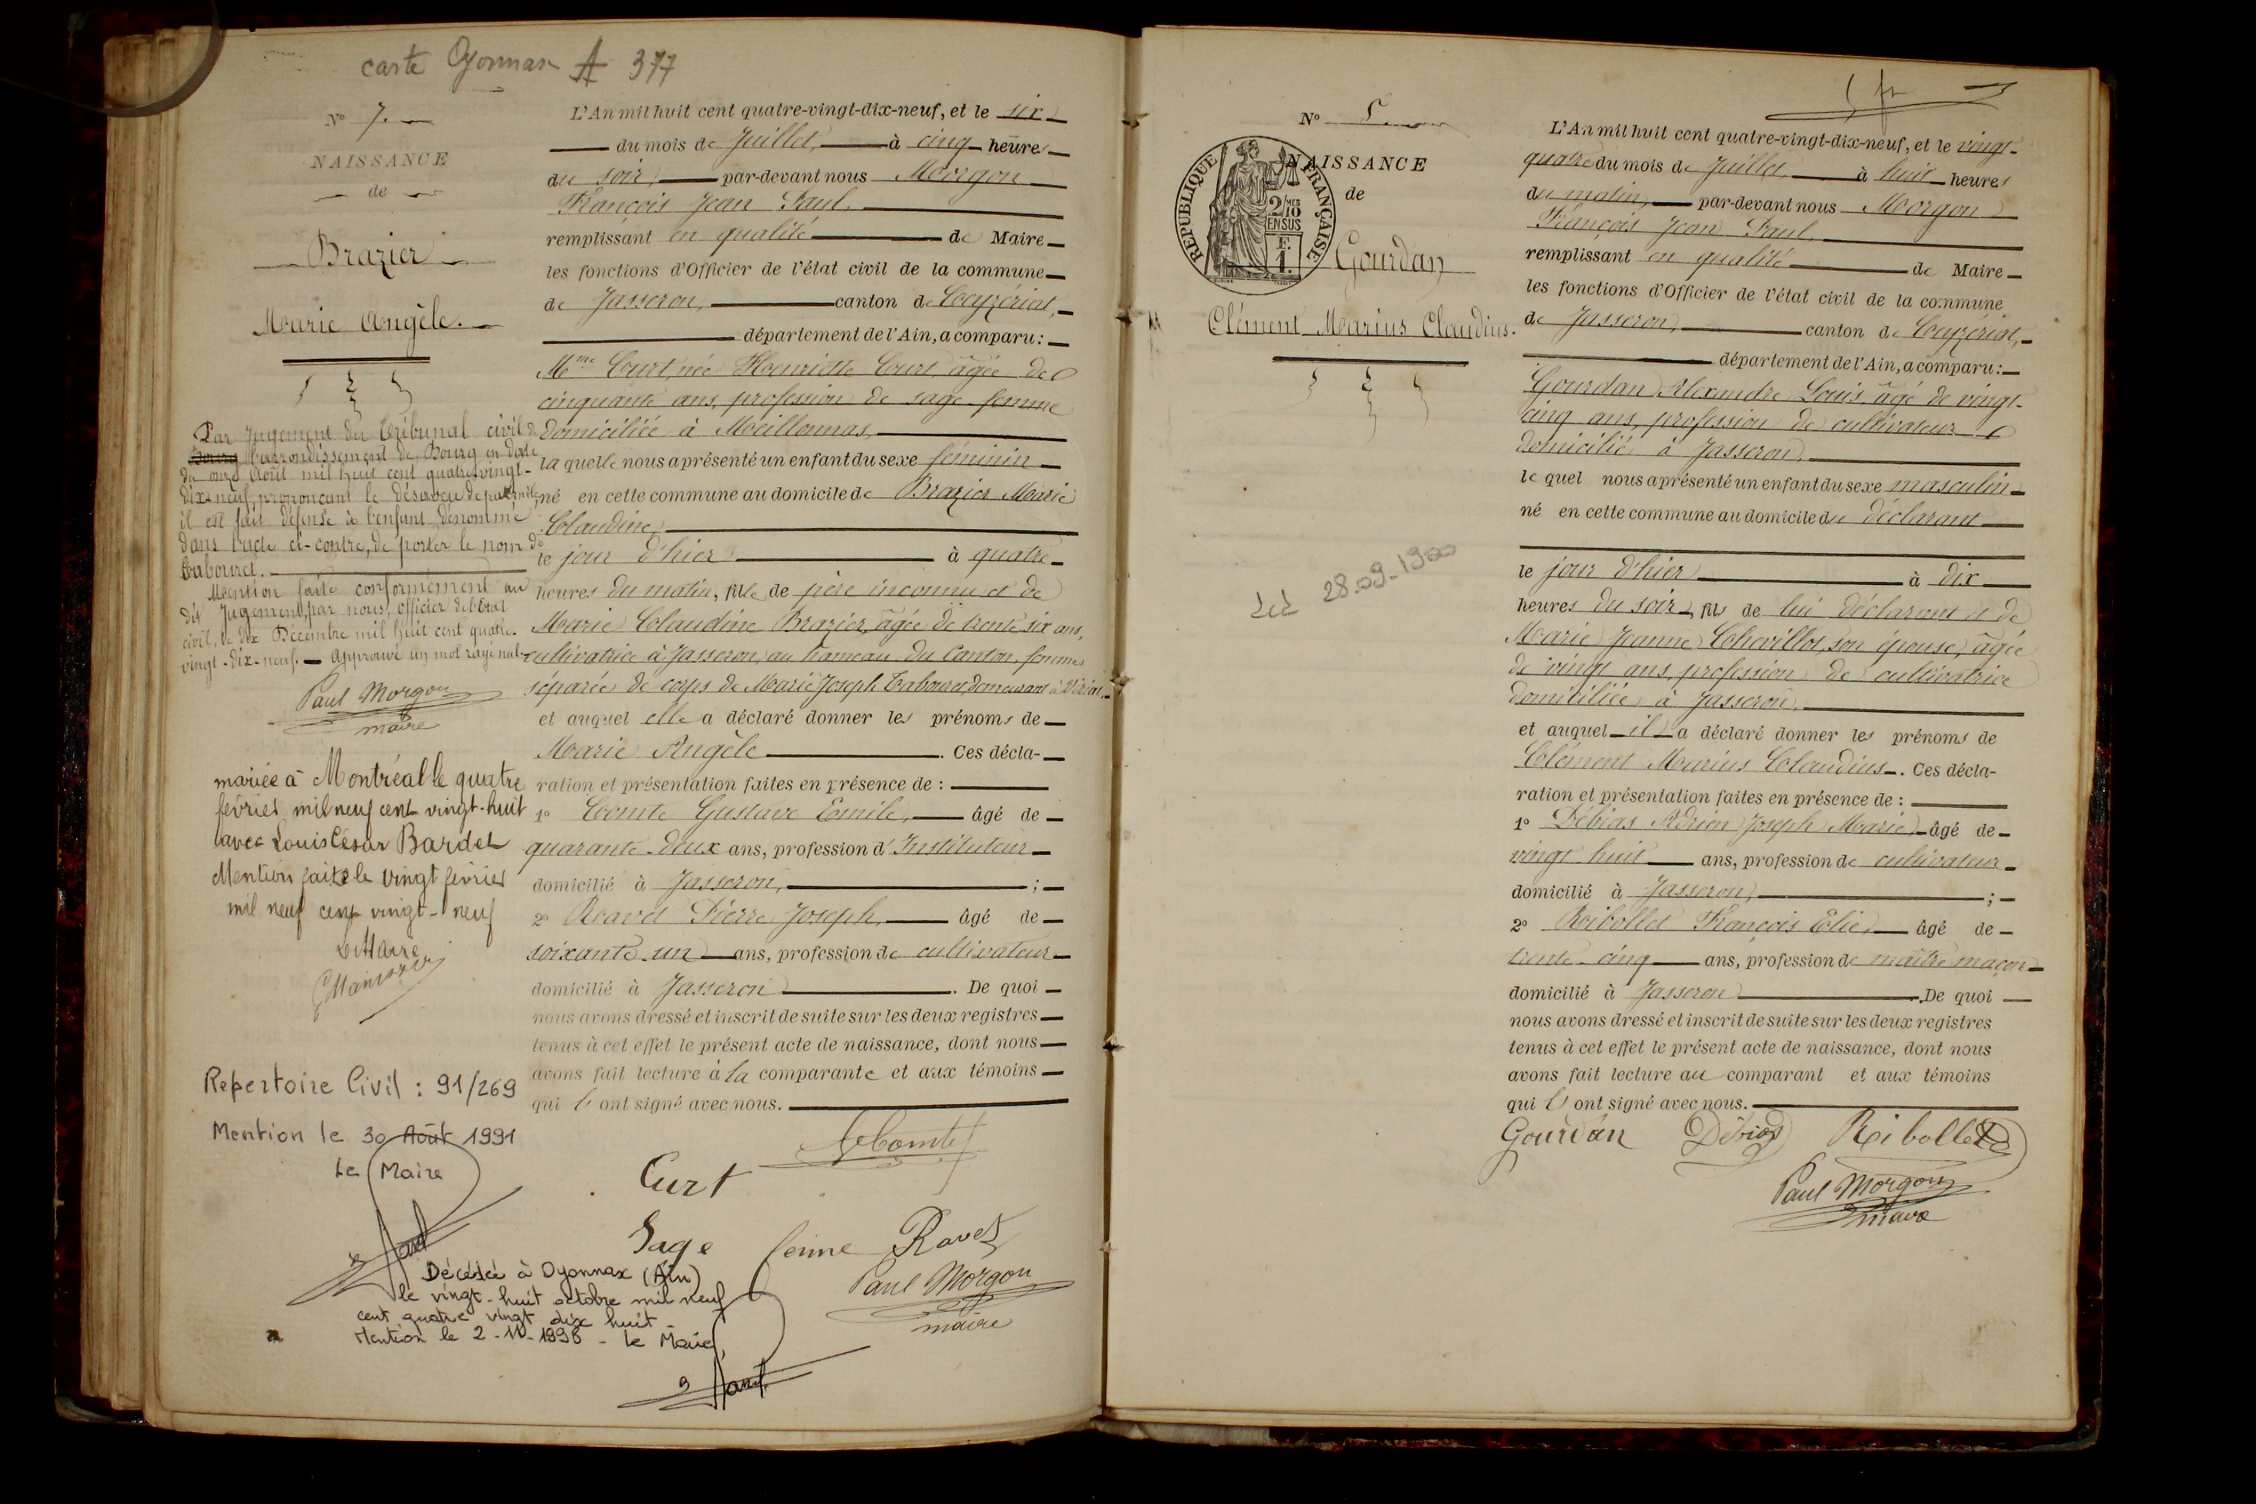 carte Oyonnax A 377
N° 7.
NAISSANCE
de
Brazier
Marie Angèle.
Par jugement du Tribunal civil de
Bourg l'arrondissement de Bourg en date
du onze Août mil huit cent quatre-vingt-
dix-neuf, prononçant le désaveu de paternité
il est fait défense à l'enfant dénommé
dans l'acte ci-contre, de porter le nom de
Tabouret.
Mention faite conformément au
dit jugement, par nous, officier de l'état
civil, le dix Décembre mil huit cent quatre-
vingt-dix-neuf. Approuvé un mot rayé nul
Paul Morgon
maire
mariée à Montréal le quatre
février mil neuf cent vingt-huit
avec Louis César Bardet
Mention faite le vingt février
mil neuf cent vingt-neuf
Le Maire
Repertoire Civil : 91/269
Mention le 30 Août 1991
Le Maire
Décédée à Oyonnax (Ain)
le vingt-huit octobre mil neuf
cent quatre vingt dix huit -
Mention le 2-11-1998 - Le Maire
L'An mil huit cent quatre-vingt-dix-neuf, et le six
du mois de Juillet, à cinq heures
du soir, par-devant nous Morgon
François Jean Paul,
remplissant en qualité de Maire
les fonctions d'Officier de l'état civil de la commune
de Jasseron, canton de Ceyzériat,
département de l'Ain, a comparu :
Mme Curt, née Henriette Curt, âgée de
cinquante ans, profession de sage-femme
domiciliée à Meillonnas,
la quelle nous a présenté un enfant du sexe féminin
né en cette commune au domicile de Brazier Marie
Claudine,
le jour d'hier à quatre
heures du matin, fille de père inconnu et de
Marie Claudine Brazier, âgée de trente six ans,
cultivatrice à Jasseron, au hameau du Canton, femme
séparée de corps de Marie Joseph Tabouret demeurant à Viriat,
et auquel elle a déclaré donner les prénoms de
Marie Angèle. Ces décla-
ration et présentation faites en présence de :
1° Comte Gustave Emile, âgé de
quarante-deux ans, profession d'Instituteur
domicilié à Jasseron, ;
2° Ravet Pierre Joseph, âgé de
soixante-un ans, profession de cultivateur
domicilié à Jasseron. De quoi
nous avons dressé et inscrit de suite sur les deux registres
tenus à cet effet le présent acte de naissance, dont nous
avons fait lecture à la comparante et aux témoins
qui l'ont signé avec nous.
Curt
Sage femme Ravet
Paul Morgon
maire
N° 8.
NAISSANCE
de
REPUBLIQUE FRANÇAISE
2/10 MES
EN SUS
F.
1.
Gourdan
Clément Marius Claudius.
Dcd 28.09.1900
L'An mil huit cent quatre-vingt-dix-neuf, et le vingt-
quatre du mois de Juillet à huit heures
du matin, par-devant nous Morgon
François Jean Paul,
remplissant en qualité de Maire
les fonctions d'Officier de l'état civil de la commune
de Jasseron, canton de Ceyzériat,
département de l'Ain, a comparu :
Gourdan Alexandre Louis, âgé de vingt-
cinq ans, profession de cultivateur
domicilié à Jasseron,
le quel nous a présenté un enfant du sexe masculin
né en cette commune au domicile du déclarant
le jour d'hier à dix
heures du soir, fils de lui déclarant et de
Marie Jeanne Chevillot son épouse, âgée
de vingt ans, profession de cultivatrice
domiciliée à Jasseron,
et auquel il a déclaré donner les prénoms de
Clément Marius Claudius. Ces décla-
ration et présentation faites en présence de :
1° Débias Adrien Joseph Marie, âgé de
vingt huit ans, profession de cultivateur
domicilié à Jasseron, ;
2° Ribollet François Elie, âgé de
trente-cinq ans, profession de maître maçon
domicilié à Jasseron. De quoi
nous avons dressé et inscrit de suite sur les deux registres
tenus à cet effet le présent acte de naissance, dont nous
avons fait lecture au comparant et aux témoins
qui l'ont signé avec nous.
Gourdan Débias Ribollet
Paul Morgon
maire